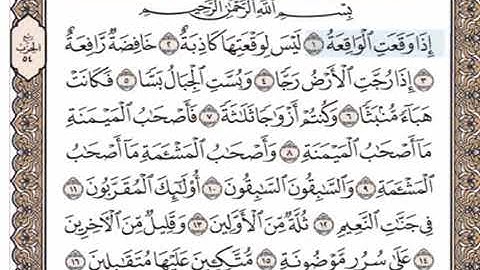 بِسْمِ ٱللَّهِ ٱلرَّحْمَٰنِ ٱلرَّحِيمِ
إِذَا وَقَعَتِ ٱلْوَاقِعَةُ ١ لَيْسَ لِوَقْعَتِهَا كَاذِبَةٌ ٢ خَافِضَةٌ رَّافِعَةٌ
٣ إِذَا رُجَّتِ ٱلْأَرْضُ رَجًّا ٤ وَبُسَّتِ ٱلْجِبَالُ بَسًّا ٥ فَكَانَتْ
هَبَآءً مُّنۢبَثًّا ٦ وَكُنتُمْ أَزْوَٰجًا ثَلَٰثَةً ٧ فَأَصْحَٰبُ ٱلْمَيْمَنَةِ
مَآ أَصْحَٰبُ ٱلْمَيْمَنَةِ ٨ وَأَصْحَٰبُ ٱلْمَشْـَٔمَةِ مَآ أَصْحَٰبُ
ٱلْمَشْـَٔمَةِ ٩ وَٱلسَّٰبِقُونَ ٱلسَّٰبِقُونَ ١٠ أُو۟لَٰٓئِكَ ٱلْمُقَرَّبُونَ ١١
فِى جَنَّٰتِ ٱلنَّعِيمِ ١٢ ثُلَّةٌ مِّنَ ٱلْأَوَّلِينَ ١٣ وَقَلِيلٌ مِّنَ ٱلْـَٔاخِرِينَ
١٤ عَلَىٰ سُرُرٍ مَّوْضُونَةٍ ١٥ مُّتَّكِـِٔينَ عَلَيْهَا مُتَقَٰبِلِينَ ١٦
ربع
الحزب
٥٤